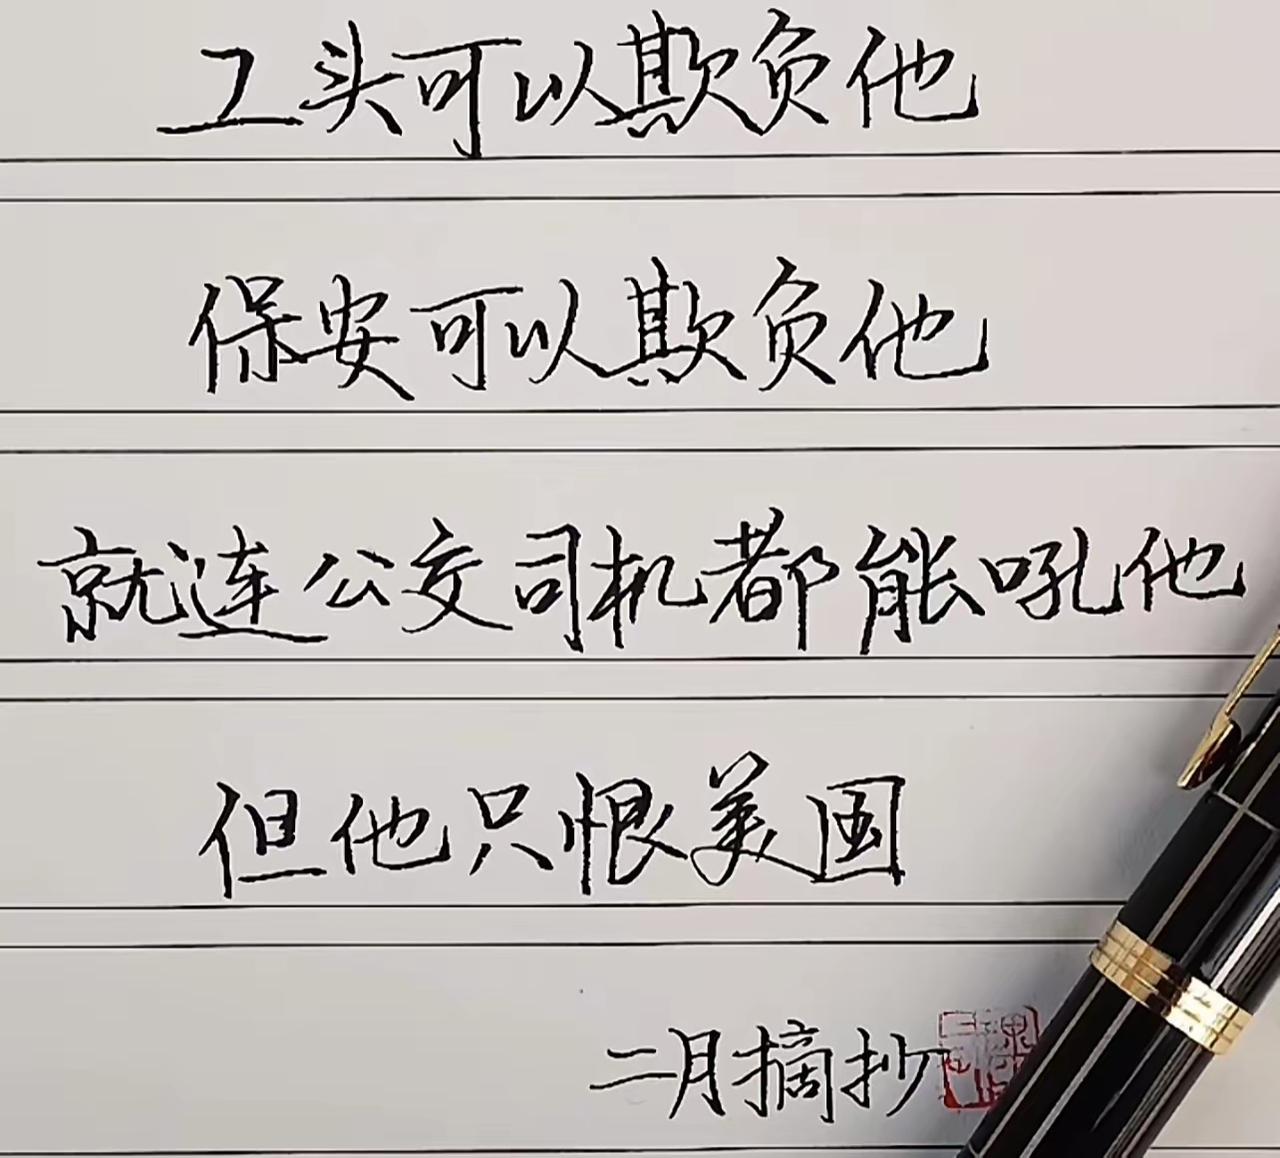 工头可以欺负他
保安可以欺负他
就连公交司机都能吼他
但他只恨美国
二月摘抄